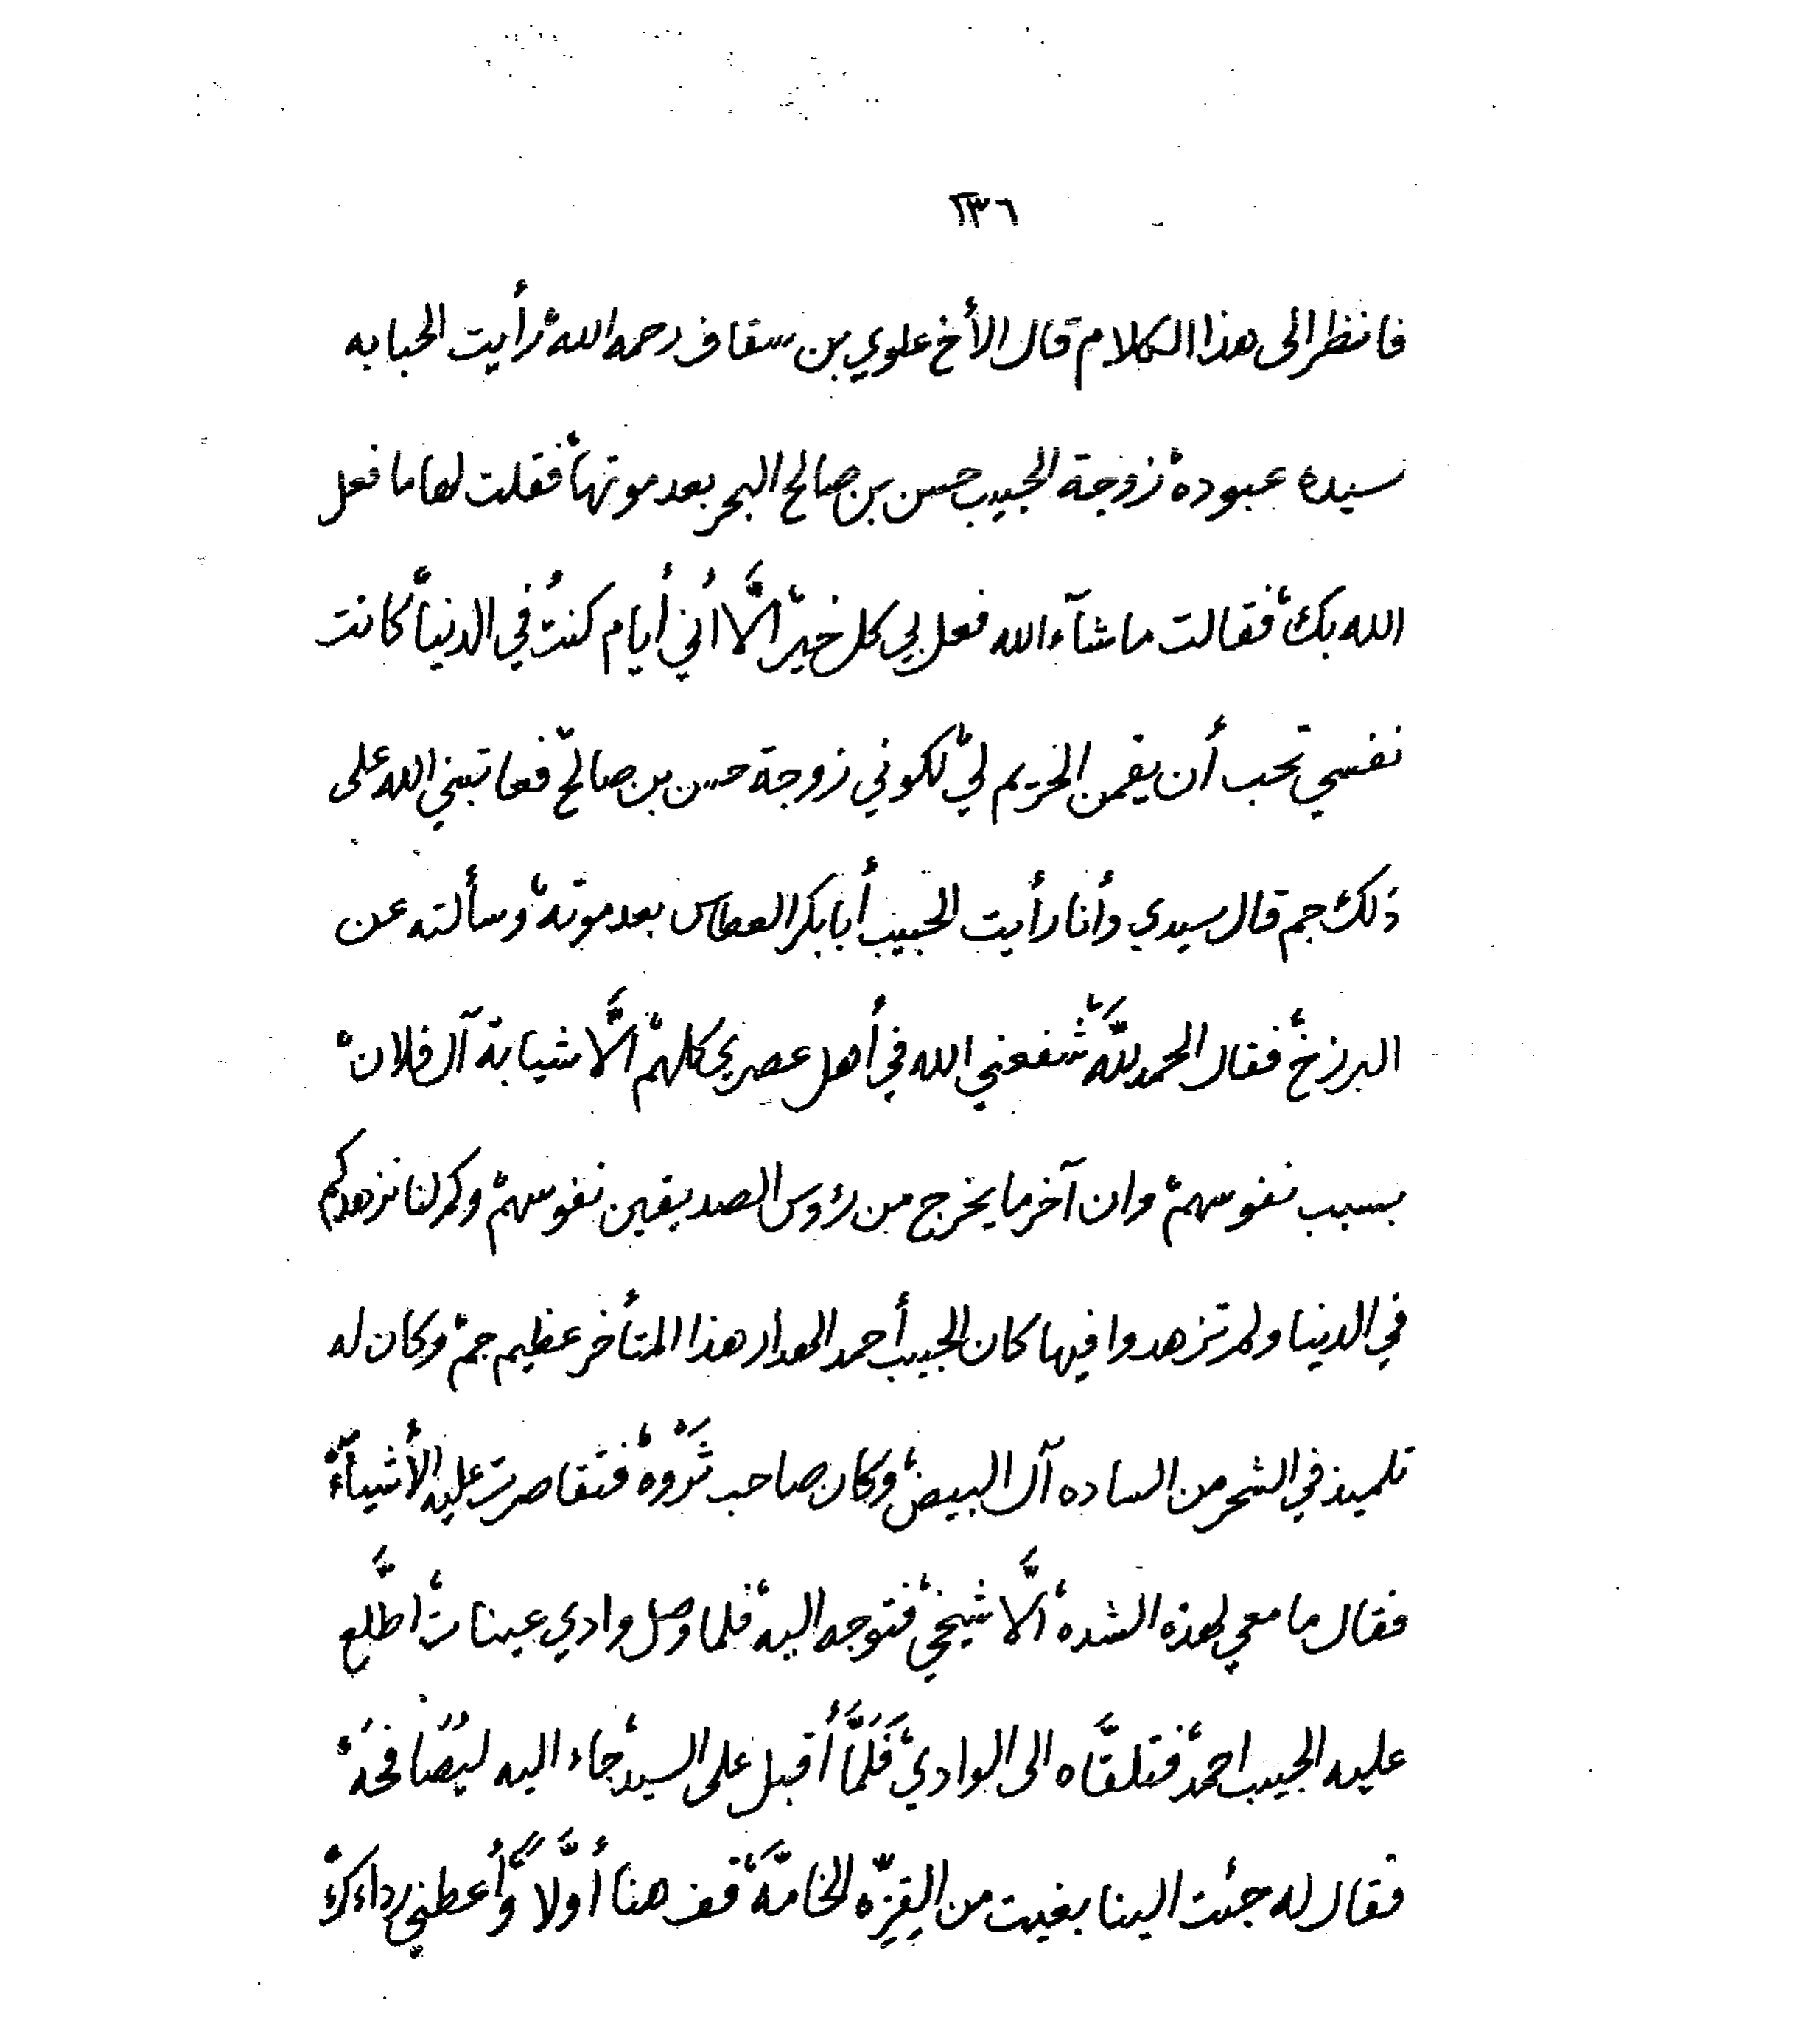 ٢٣٦
فانظر الى هذا الكلام قال الأخ علوي بن سقاف رحمه الله رأيت الحبابه
سيده عبوده زوجة الحبيب حسن بن صالح البحر بعد موتها فقلت لها ما فعل
الله بك فقالت ماشآء الله فعل بي كل خير الَّا أني أيام كنتُ في الدنيا كانت
نفسي تحب أن يقمن الحريم لي لكوني زوجة حسن بن صالح فعاتبني الله على
ذلك جم قال سيدي وأنا رأيت الحبيب أبا بكر العطاس بعد موته وسألته عن
البرزخ فقال الحمد للَّه شَفعني الله في أهل عصري كلهم الَّا شيابة آل فلان
بسبب نفوسهم وان آخر ما يخرج من رؤوس الصديقين نفوسهم وكم لنا نزهدكم
في الدنيا ولم تزهدوا فيها كان الحبيب أحمد الهدار هذا المتأخر عظيم جم وكان له
تلميذ في الشحر من الساده آل البيض وكان صاحب ثَرْوه فتقاصرت عليه الأشيآء
فقال ما معي لهذه الشده الَّا شيخي فتوجه اليه فلما وصل وادي عينات اطَّلع
عليه الحبيب احمد فتلقَّاه الى الوادي فَلَمَّا أقبل على السيد جاء اليه ليُصَافحَهُ
فقال له جئت الينا بغيت من القِزِّه الخامَّه قف هنا أوَّلاً وأعطني رداءك